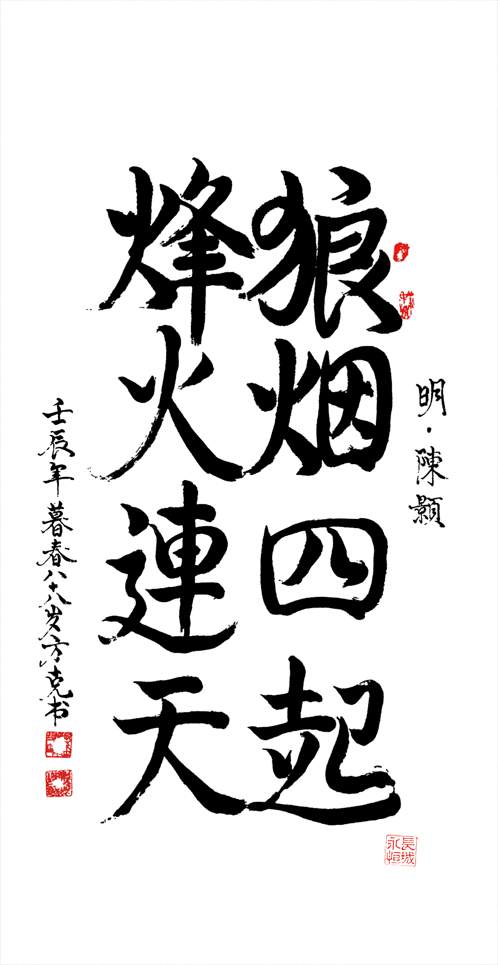 明·陳顥
狼烟四起
烽火連天
壬辰年暮春八十八岁方克书
長城永恒